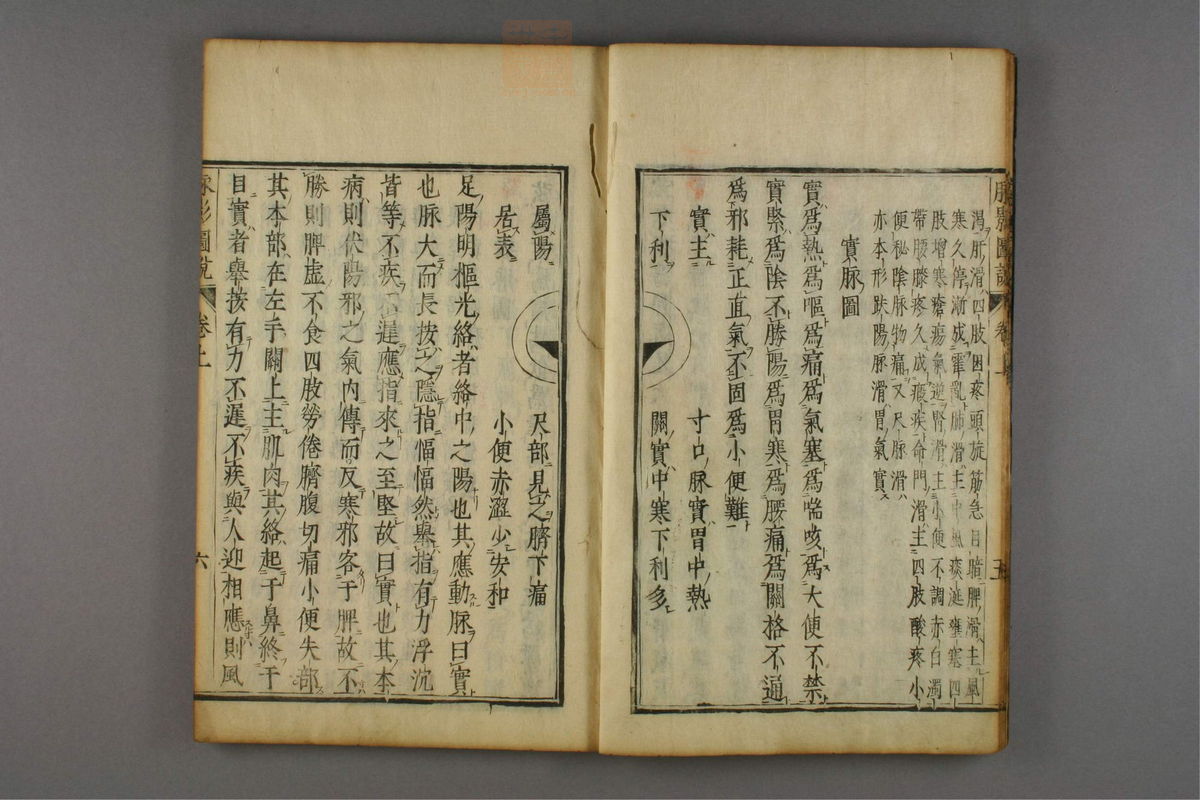 渴肝滑四肢困疼頭旋筋急目暗脾滑主風
寒久停漸成霍亂肺滑主中風痰涎壅塞四
肢增寒瘡瘍氣逆腎滑主小便不調赤白濁
帶腰膝疼久成瘕疾命門滑主四肢酸疼小
便秘陰脉物痛又尺脉滑
亦本形趺陽脉滑胃氣實
實脉圖
實爲熱爲嘔爲痛爲氣塞爲喘咳爲大便不禁
實緊爲陰不勝陽爲胃寒爲腰痛爲關格不通
爲邪耗正直氣不固爲小便難
實主 寸口脉實胃中熱
下利 關實中寒下利多
屬陽 尺部見之臍下痛
居表 小便赤澀少安和
足陽明樞光絡者絡中之陽也其應動脉曰實
也脉大而長按之隱指愊愊然舉指有力浮沉
皆等不疾不遲應指來之至堅故曰實也其本
病則伏陽邪之氣內傳而反寒邪客于脾故不
勝則脾虛不食四肢勞倦臍腹切痛小便失部
其本部在左手關上主肌肉其絡起于鼻終于
目實者舉按有力不遲不疾與人迎相應則風
脉影圖說 卷上 六